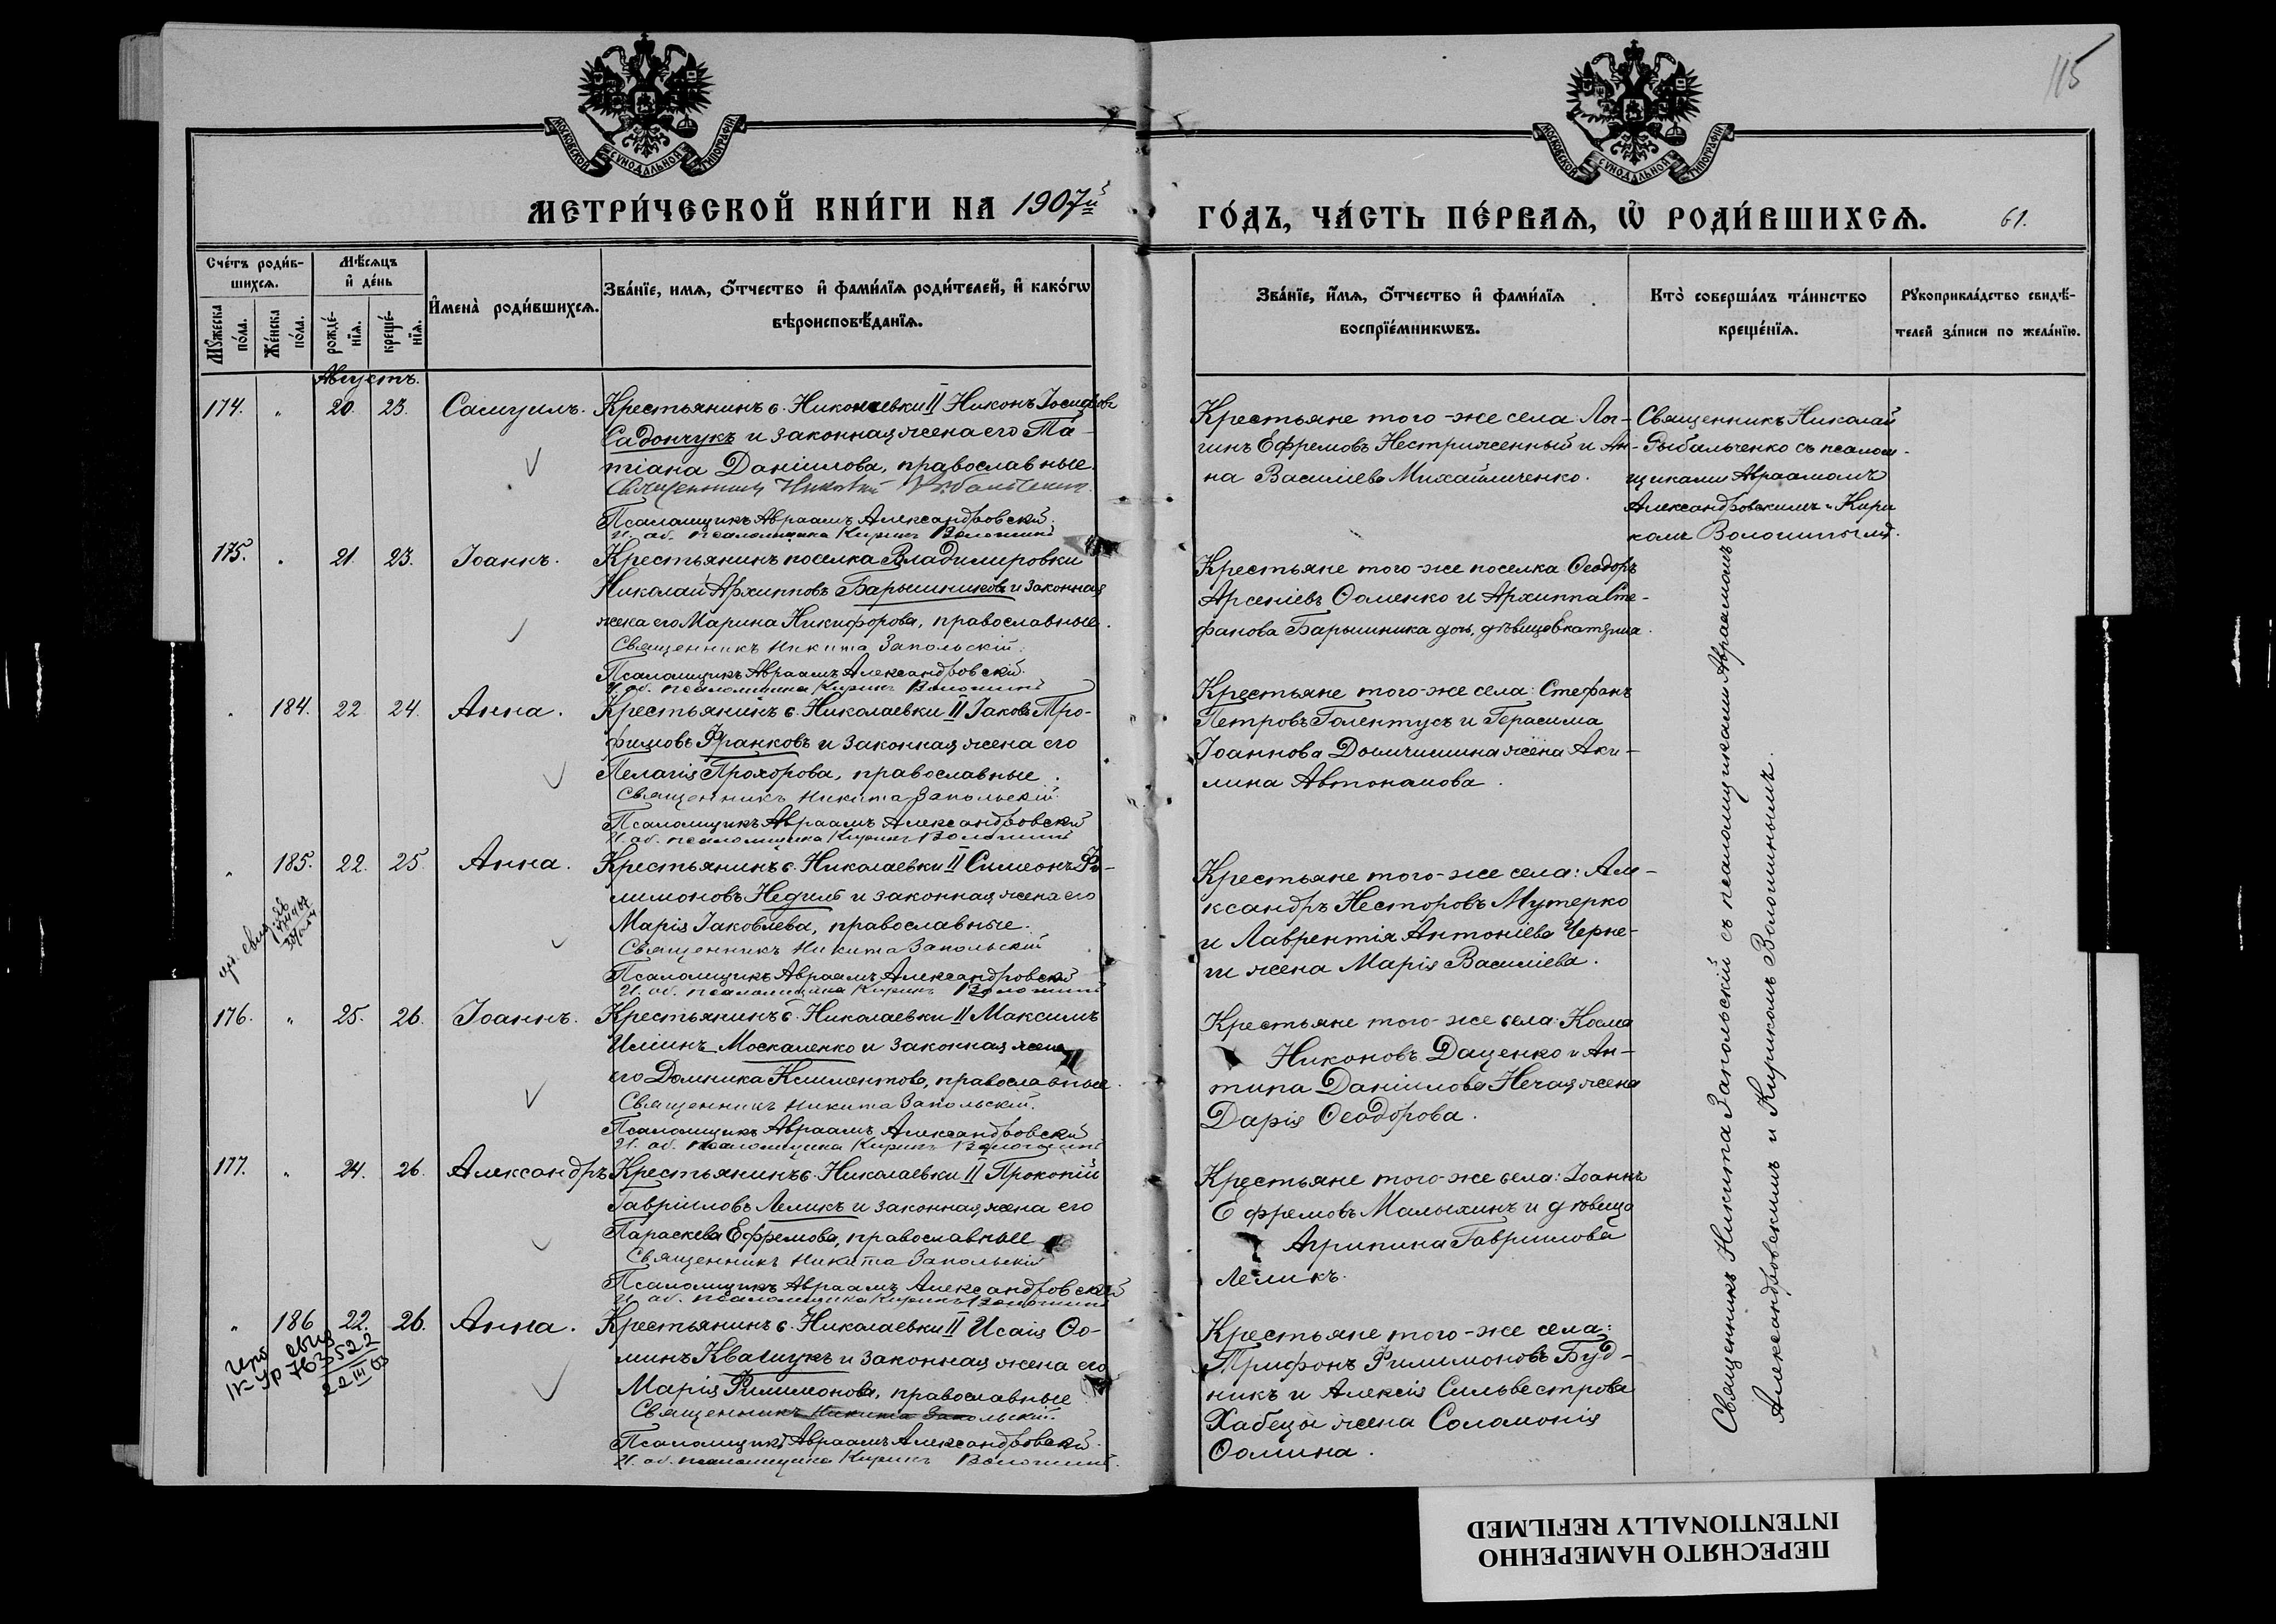 115
МОСКОВСКОЙ СУНОДАЛЬНОЙ ТИПОГРАФІИ
МОСКОВСКОЙ СУНОДАЛЬНОЙ ТИПОГРАФІИ
МЕТРИ́ЧЕСКОЙ КНИ́ГИ НА 1907й
ГО́ДЪ, ЧА́СТЬ ПЕ́РВАѦ, Ѡ҆ РОДИ́ВШИХСѦ. 61.
Сче́тъ роди́в-
шихсѧ.
Мꙋ́жеска
по́ла.
Же́нска
по́ла.
Мѣ́сѧцъ
и҆ де́нь
рожде́-
нїѧ.
креще́-
нїѧ.
И҆мена̀ роди́вшихсѧ.
Зва́нїе, имѧ, ѻ҆́тчество и҆ фами́лїѧ роди́телей, и҆ како́гѡ
вѣроисповѣ́данїѧ.
Зва́нїе, и҆́мѧ, ѻ҆́тчество и҆ фами́лїѧ
воспрїе́мникѡвъ.
Кто̀ соверша́лъ та́инство
креще́нїѧ.
Рꙋкоприкла́дство свидѣ́-
телей за́писи по жела́нїю.
Августъ.
174. " 20. 23. Самуилъ.
Крестьянинъ с. Николаевки II Никонъ Іосифовъ
Садончукъ и законная жена его Та-
тіана Даніилова, православные.
Священникъ Николай Рыбальченко.
Псаломщикъ Авраамъ Александровскій.
И. об. псаломщика Кирикъ Волошинъ
Крестьяне того-же села Лон-
гинъ Ефремовъ Нестриженный и Ан-
на Василіева Михайличенко.
Священникъ Николай
Рыбальченко съ псалом-
щиками Авраамомъ
Александровскимъ и Кири
комъ Волошинымъ.
175. " 21. 23. Іоаннъ.
Крестьянинъ поселка Владимировки
Николай Архипповъ Барышниковъ и законная
жена его Марина Никифорова, православные.
Священникъ Никита Запольскій.
Псаломщикъ Авраамъ Александровскій.
И. об. псаломщика Кирикъ Волошинъ
Крестьяне того-же поселка Ѳеодоръ
Арсеніевъ Ѳоменко и Архиппа Сте-
фанова Барышника дочь, дѣвица Екатерина.
" 184. 22 24. Анна.
Крестьянинъ с. Николаевки II Іаковъ Тро-
фимовъ Франковъ и законная жена его
Пелагія Прохорова, православные.
Священникъ Никита Запольскій.
Псаломщикъ Авраамъ Александровскій
И. об. псаломщика Кирикъ Волошинъ
Крестьяне того-же села: Стефанъ
Петровъ Голентусъ и Герасима
Іоаннова Домчишина жена Аки-
лина Автономова.
" 185. 22. 25. Анна.
Крестьянинъ с. Николаевки II Симеонъ Фи-
лимоновъ Недиль и законная жена его
Марія Іаковлева, православные.
Священникъ Никита Запольскій
Псаломщикъ Авраамъ Александровскій
И. об. псаломщика Кирикъ Волошинъ
Крестьяне того-же села: Але-
ксандръ Несторовъ Мутерко
и Лаврентія Антоніева Черне-
ги жена Марія Василіева.
176. " 25. 26. Іоаннъ.
Крестьянинъ с. Николаевки II Максимъ
Иліинъ Москаленко и законная жена
его Домника Климентова, православные.
Священникъ Никита Запольскій.
Псаломщикъ Авраамъ Александровскій
И. об. псаломщика Кирикъ Волошинъ
Крестьяне того-же села: Косма
Никоновъ Даценко и Ан-
типа Даніилова Нечая жена
Дарія Ѳеодорова.
177. " 24. 26. Александръ
Крестьянинъ с. Николаевки II Прокопій
Гавріиловъ Леликъ и законная жена его
Параскева Ефремова, православные
Священникъ Никита Запольскій
Псаломщикъ Авраамъ Александровскій
И. об. псаломщика Кирикъ Волошинъ
Крестьяне того-же села: Іоаннъ
Ефремовъ Малыхинъ и дѣвица
Агрипина Гавриилова
Леликъ.
" 186 22. 26. Анна.
Крестьянинъ с. Николаевки II Исаія Ѳо-
минъ Квашукъ и законная жена его
Марія Филимонова, православные
Священникъ Никита Запольскій.
Псаломщикъ Авраамъ Александровскій.
И. об. псаломщика Кирикъ Волошинъ.
Крестьяне того-же села:
Трифонъ Филимоновъ Буд-
никъ и Алексія Сильвестрова
Хабецы жена Соломонія
Ѳомина.
Священникъ Никита Запольскій съ псаломщиками Авраамомъ
Александровскимъ и Кирикомъ Волошинымъ.
ПЕРЕСНЯТО НАМЕРЕННО
INTENTIONALLY REFILMED